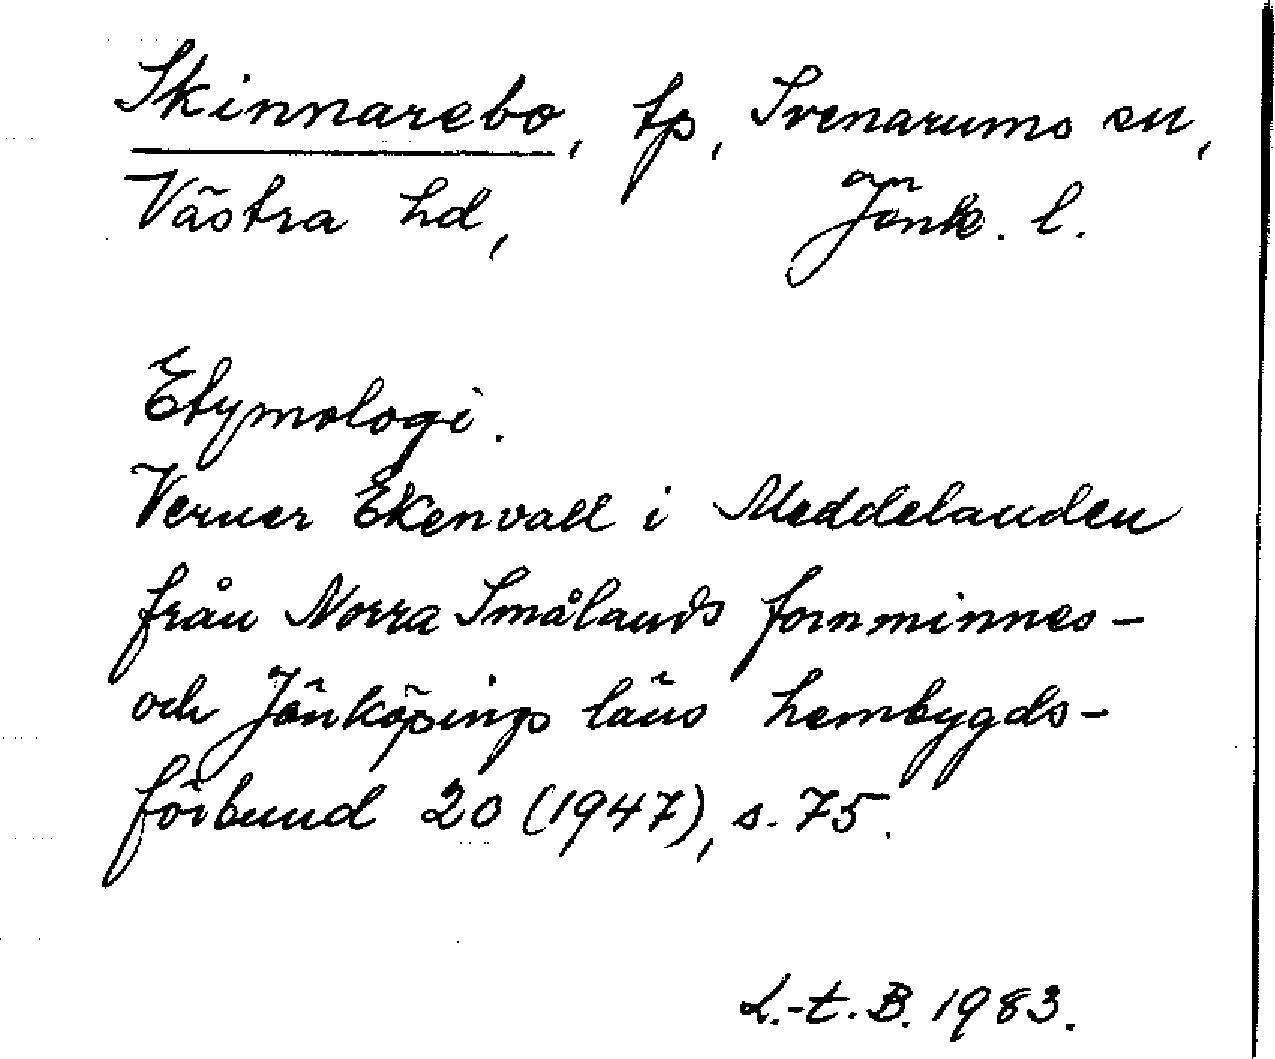 Skinnarebo, tp, Svenarums sn,
Västra hd, Jönk. l.
Etymologi.
Verner Ekenvall i Meddelanden
från Norra Smålands fornminnes-
och Jönköpings läns hembygds-
förbund 20 (1947), s. 75.
L.-t. B. 1983.